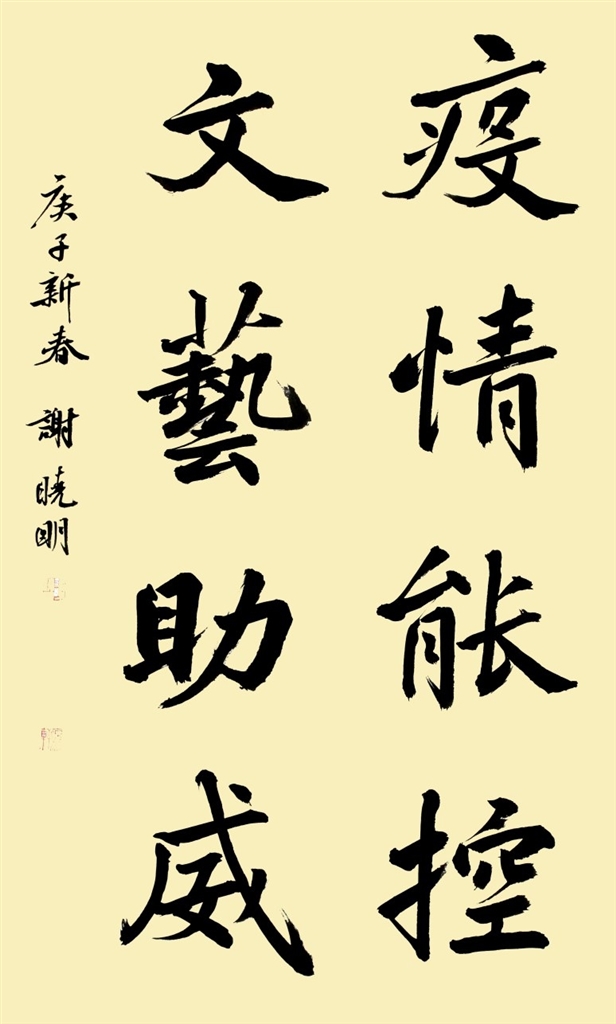 疫情能控
文藝助威
庚子新春 謝曉明